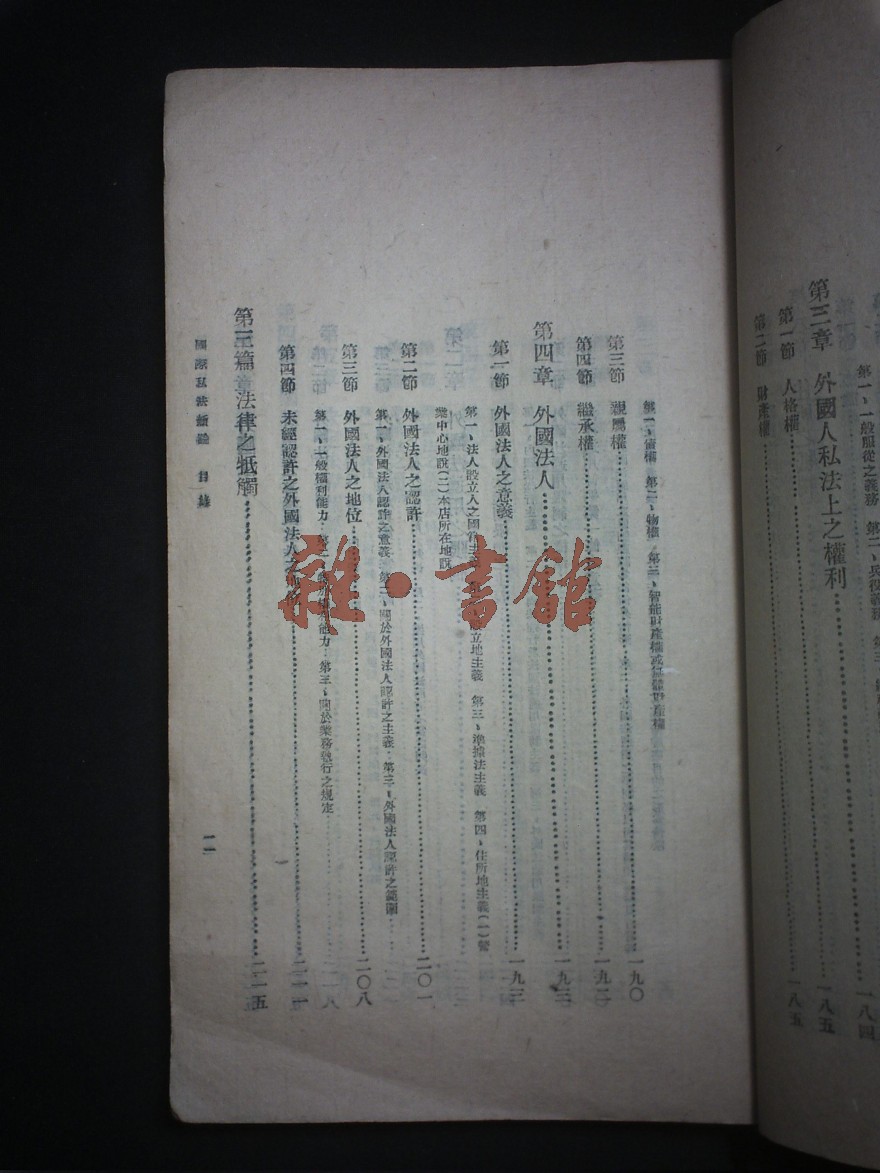 第一、一般服從之義務 第二、兵役義務 第三、
一八四
第三章 外國人私法上之權利
一八五
第一節 人格權
一八五
第二節 財產權
一八五
第一、債權 第二、物權 第三、智能財產權或無體財產權
第三節 親屬權
一九〇
第四節 繼承權
一九二
第四章 外國法人
一九三
第一節 外國法人之意義
一九三
第一、法人設立人之國籍主義 立地主義 第三、準據法主義 第四、住所地主義(一)營
業中心地說(二)本店所在地說
第二節 外國法人之認許
二〇一
第一、外國法人認許之意義 第二、關於外國法人認許之主義 第三、外國法人認許之範圍
第三節 外國法人之地位
二〇八
第一、一般權利能力 能力 第三、關於業務執行之規定
第四節 未經認許之外國法人之
二一一
第三篇 法律之牴觸
二一五
國際私法新論 目錄
雜·書館